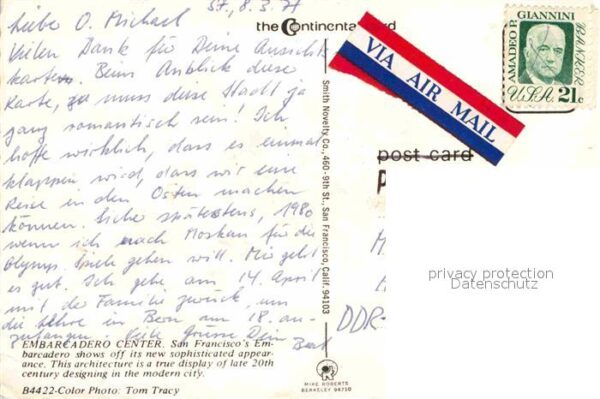 SF, 8.3.7
Liebe O. Michael
Vielen Dank für Deine Ansichts
karten. Beim Anblick diese
Karte, zu muss diese Stadt ja
ganz romantisch sein! Ich
hoffe wirklich, dass es einmal
klappen wird, dass wir eine
Reise in den Osten machen
können. Sicher spätestens, 1980
wenn ich nach Moskau für die
Olymp. Spiele gehen will. Mir geht
es gut. Ich gehe am 14. April
mit der Familie zurück, um
die Lehre in Bern am 18. an-
zufangen. Viele Grüsse Dein
EMBARCADERO CENTER. San Francisco's Em-
barcadero shows off its new sophisticated appear-
ance. This architecture is a true display of late 20th
century designing in the modern city.
B4422-Color Photo: Tom Tracy
the Continental Card
Smith Novelty Co., 460 - 9th St., San Francisco, Calif. 94103
MIKE ROBERTS
BERKELEY 94710
VIA AIR MAIL
AMADEO P. GIANNINI
BANKER
U.S.A. 21c
post card
privacy protection
Datenschutz
DDR-